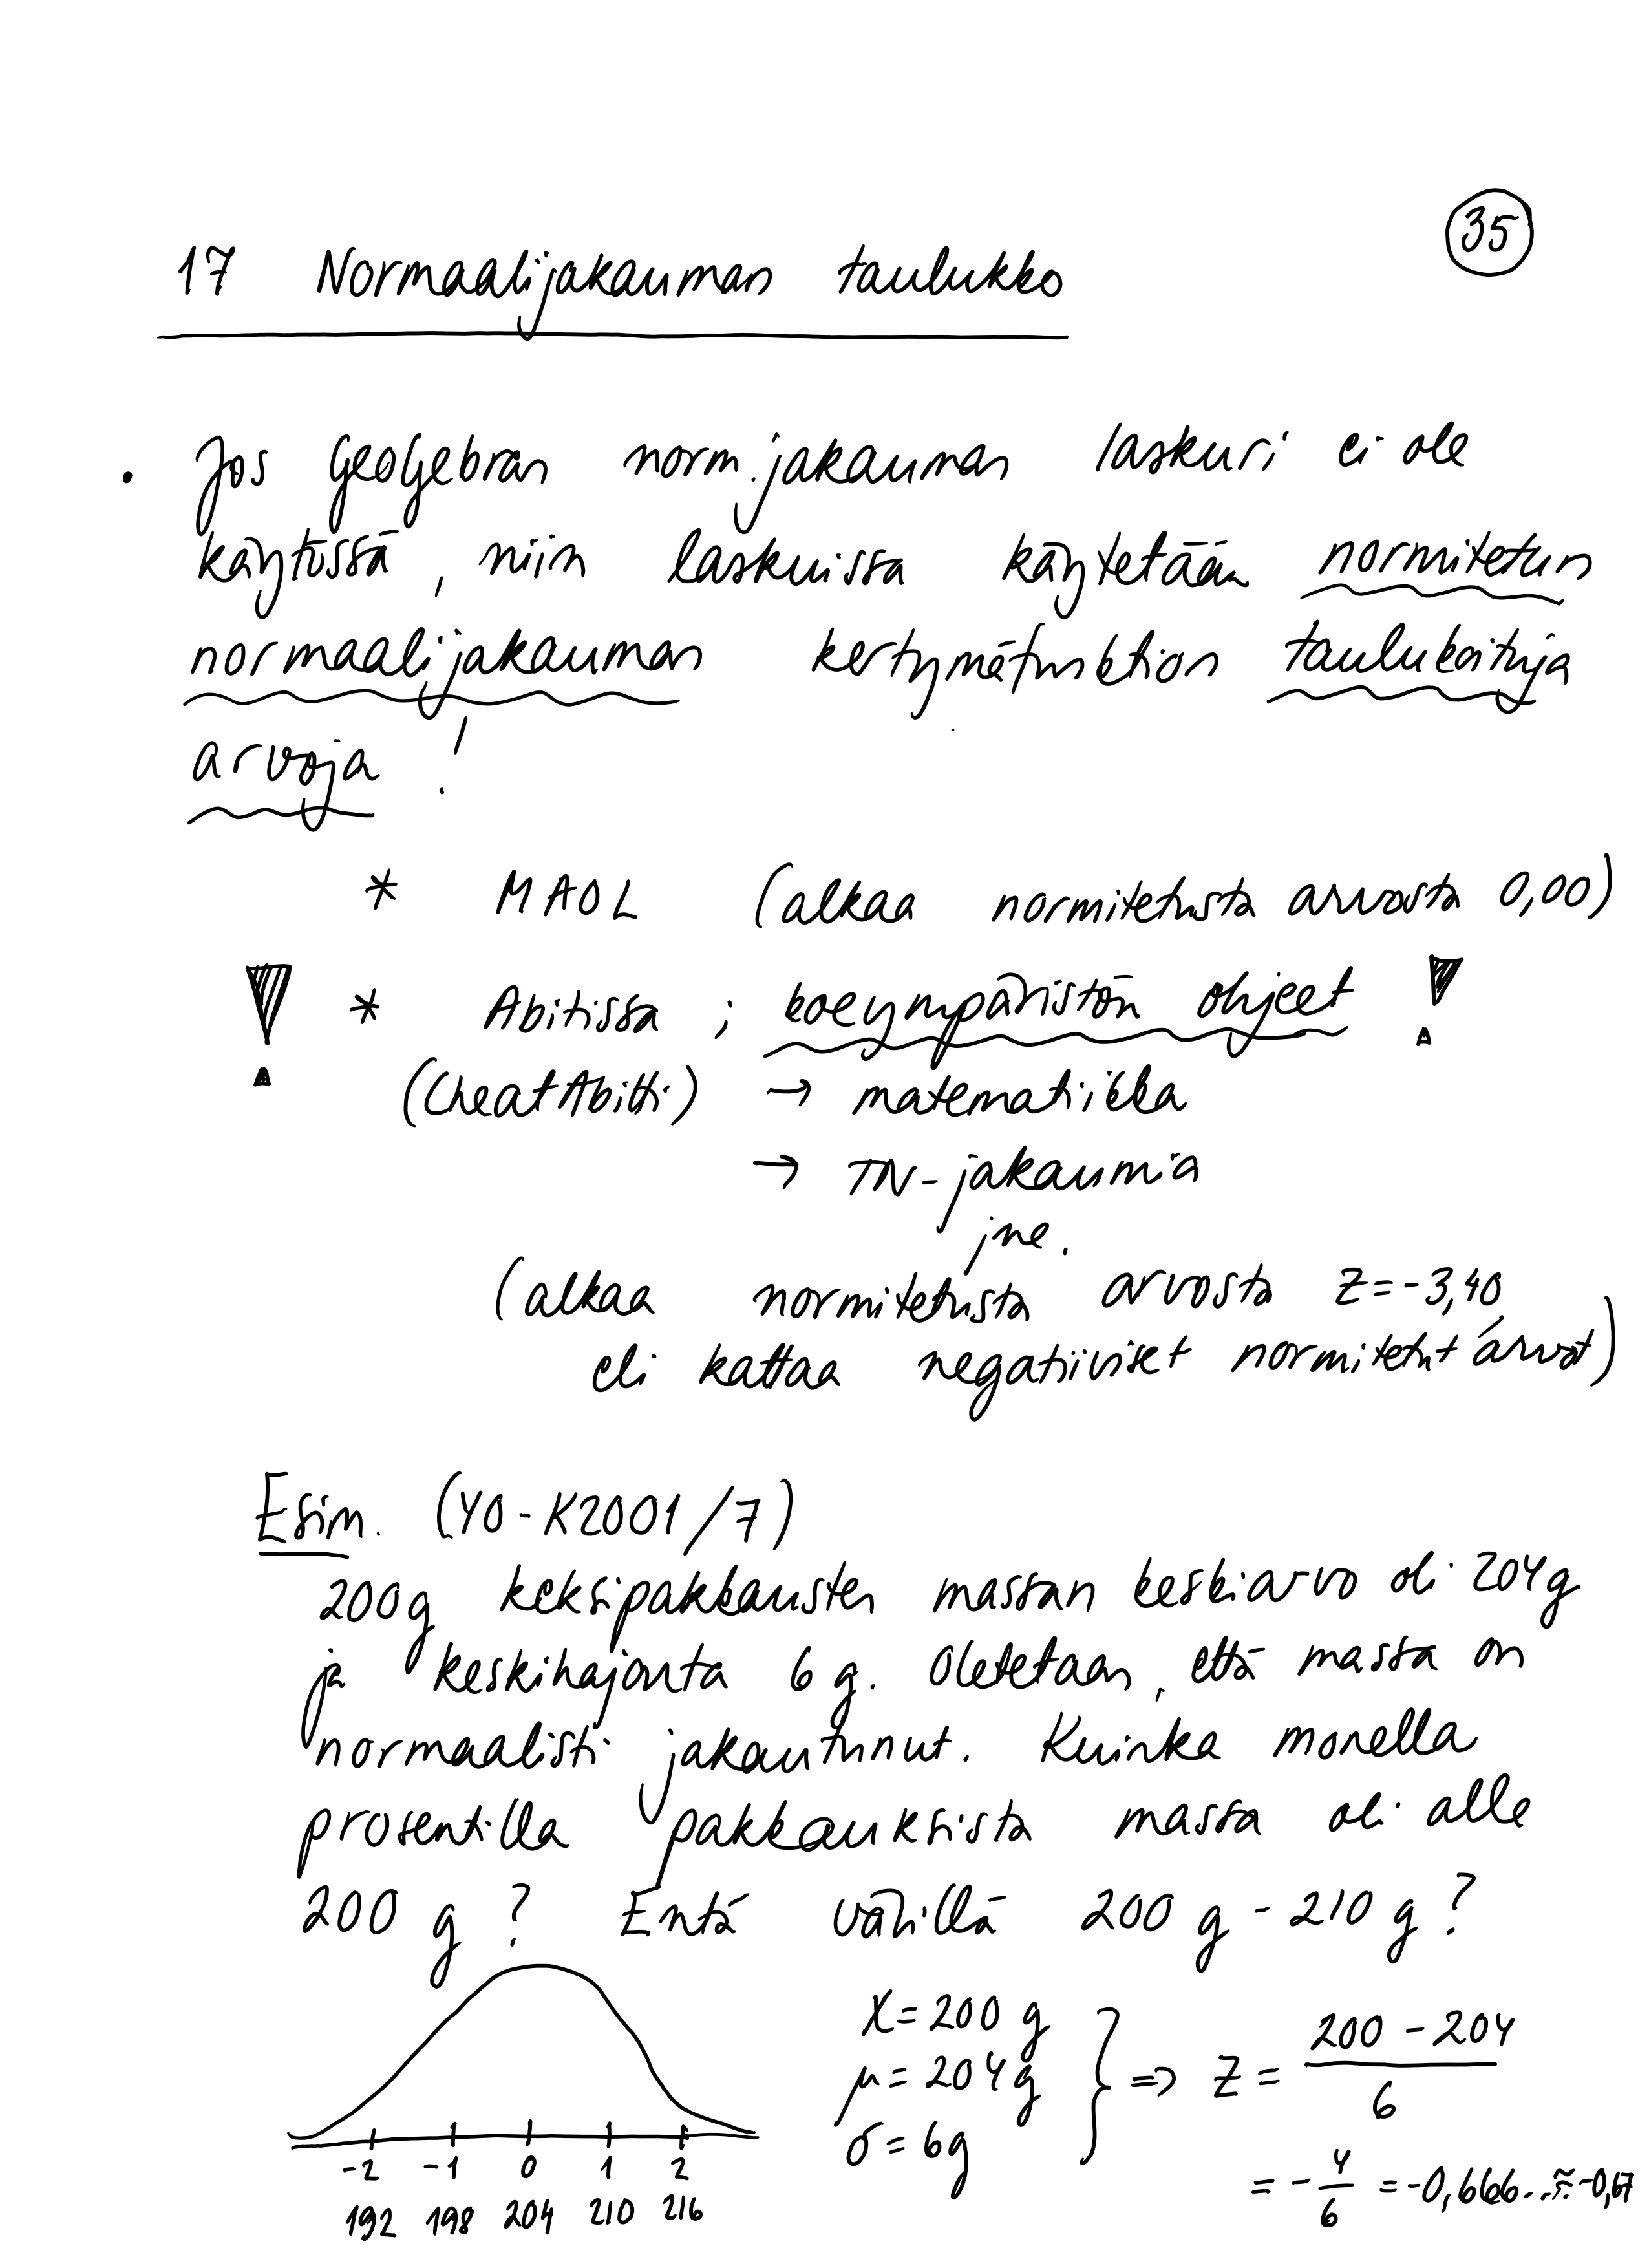 35
17 Normaalijakauman taulukko
• Jos Geogebran norm.jakauman laskuri ei ole
käytössä, niin laskuissa käytetään normitetun
normaalijakauman kertymäfunktion taulukoituja
arvoja !
* MAOL (alkaa normitetusta arvosta 0,00)
! * Abitissa ; koeympäristön ohjeet !
(CheatAbitti) → matematiikka
→ TN-jakaumia
jne.
(alkaa normitetusta arvosta z=-3,40
eli kattaa negatiiviset normitetut arvot)
Esim. (YO-K2001/7)
200g keksipakkausten massan keskiarvo oli 204g
ja keskihajonta 6 g. Oletetaan, että massa on
normaalisti jakautunut. Kuinka monella
prosentilla pakkauksista massa oli alle
200 g ? Entä välillä 200 g - 210 g ?
X = 200 g
μ = 204 g } ⇒ Z = (200 - 204)/6
σ = 6g
= - 4/6 = -0,666... ≈ -0,67
-2 -1 0 1 2
192 198 204 210 216